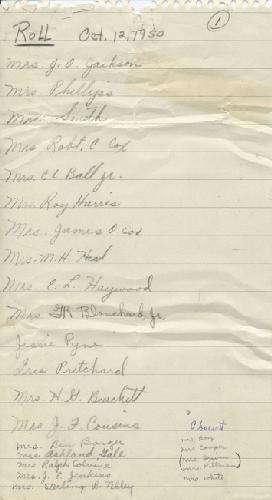 ①
Roll Oct. 12, 1950
Mrs. J. O. Jackson
Mrs Phillips
Mrs. Smith
Mrs Robt. C Cox
Mrs. C C Ball Jr.
Mrs. Roy Harris
Mrs. James O Cox
Mrs. M. H. Head
Mrs E. L. Haywood
Mrs Blanchard Jr.
Jessie Pyne
Iris Pritchard
Mrs H. G. Burkett
Mrs J. F. Cousins
Mrs. Ben Barger
Mrs Ashland Gale
Mrs Ralph
Mrs. J. E. Jenkins
Mrs Sterling B Tilley
Absent
Mrs
Mrs Cooper
Mrs
Mrs. Pittman
Mrs White